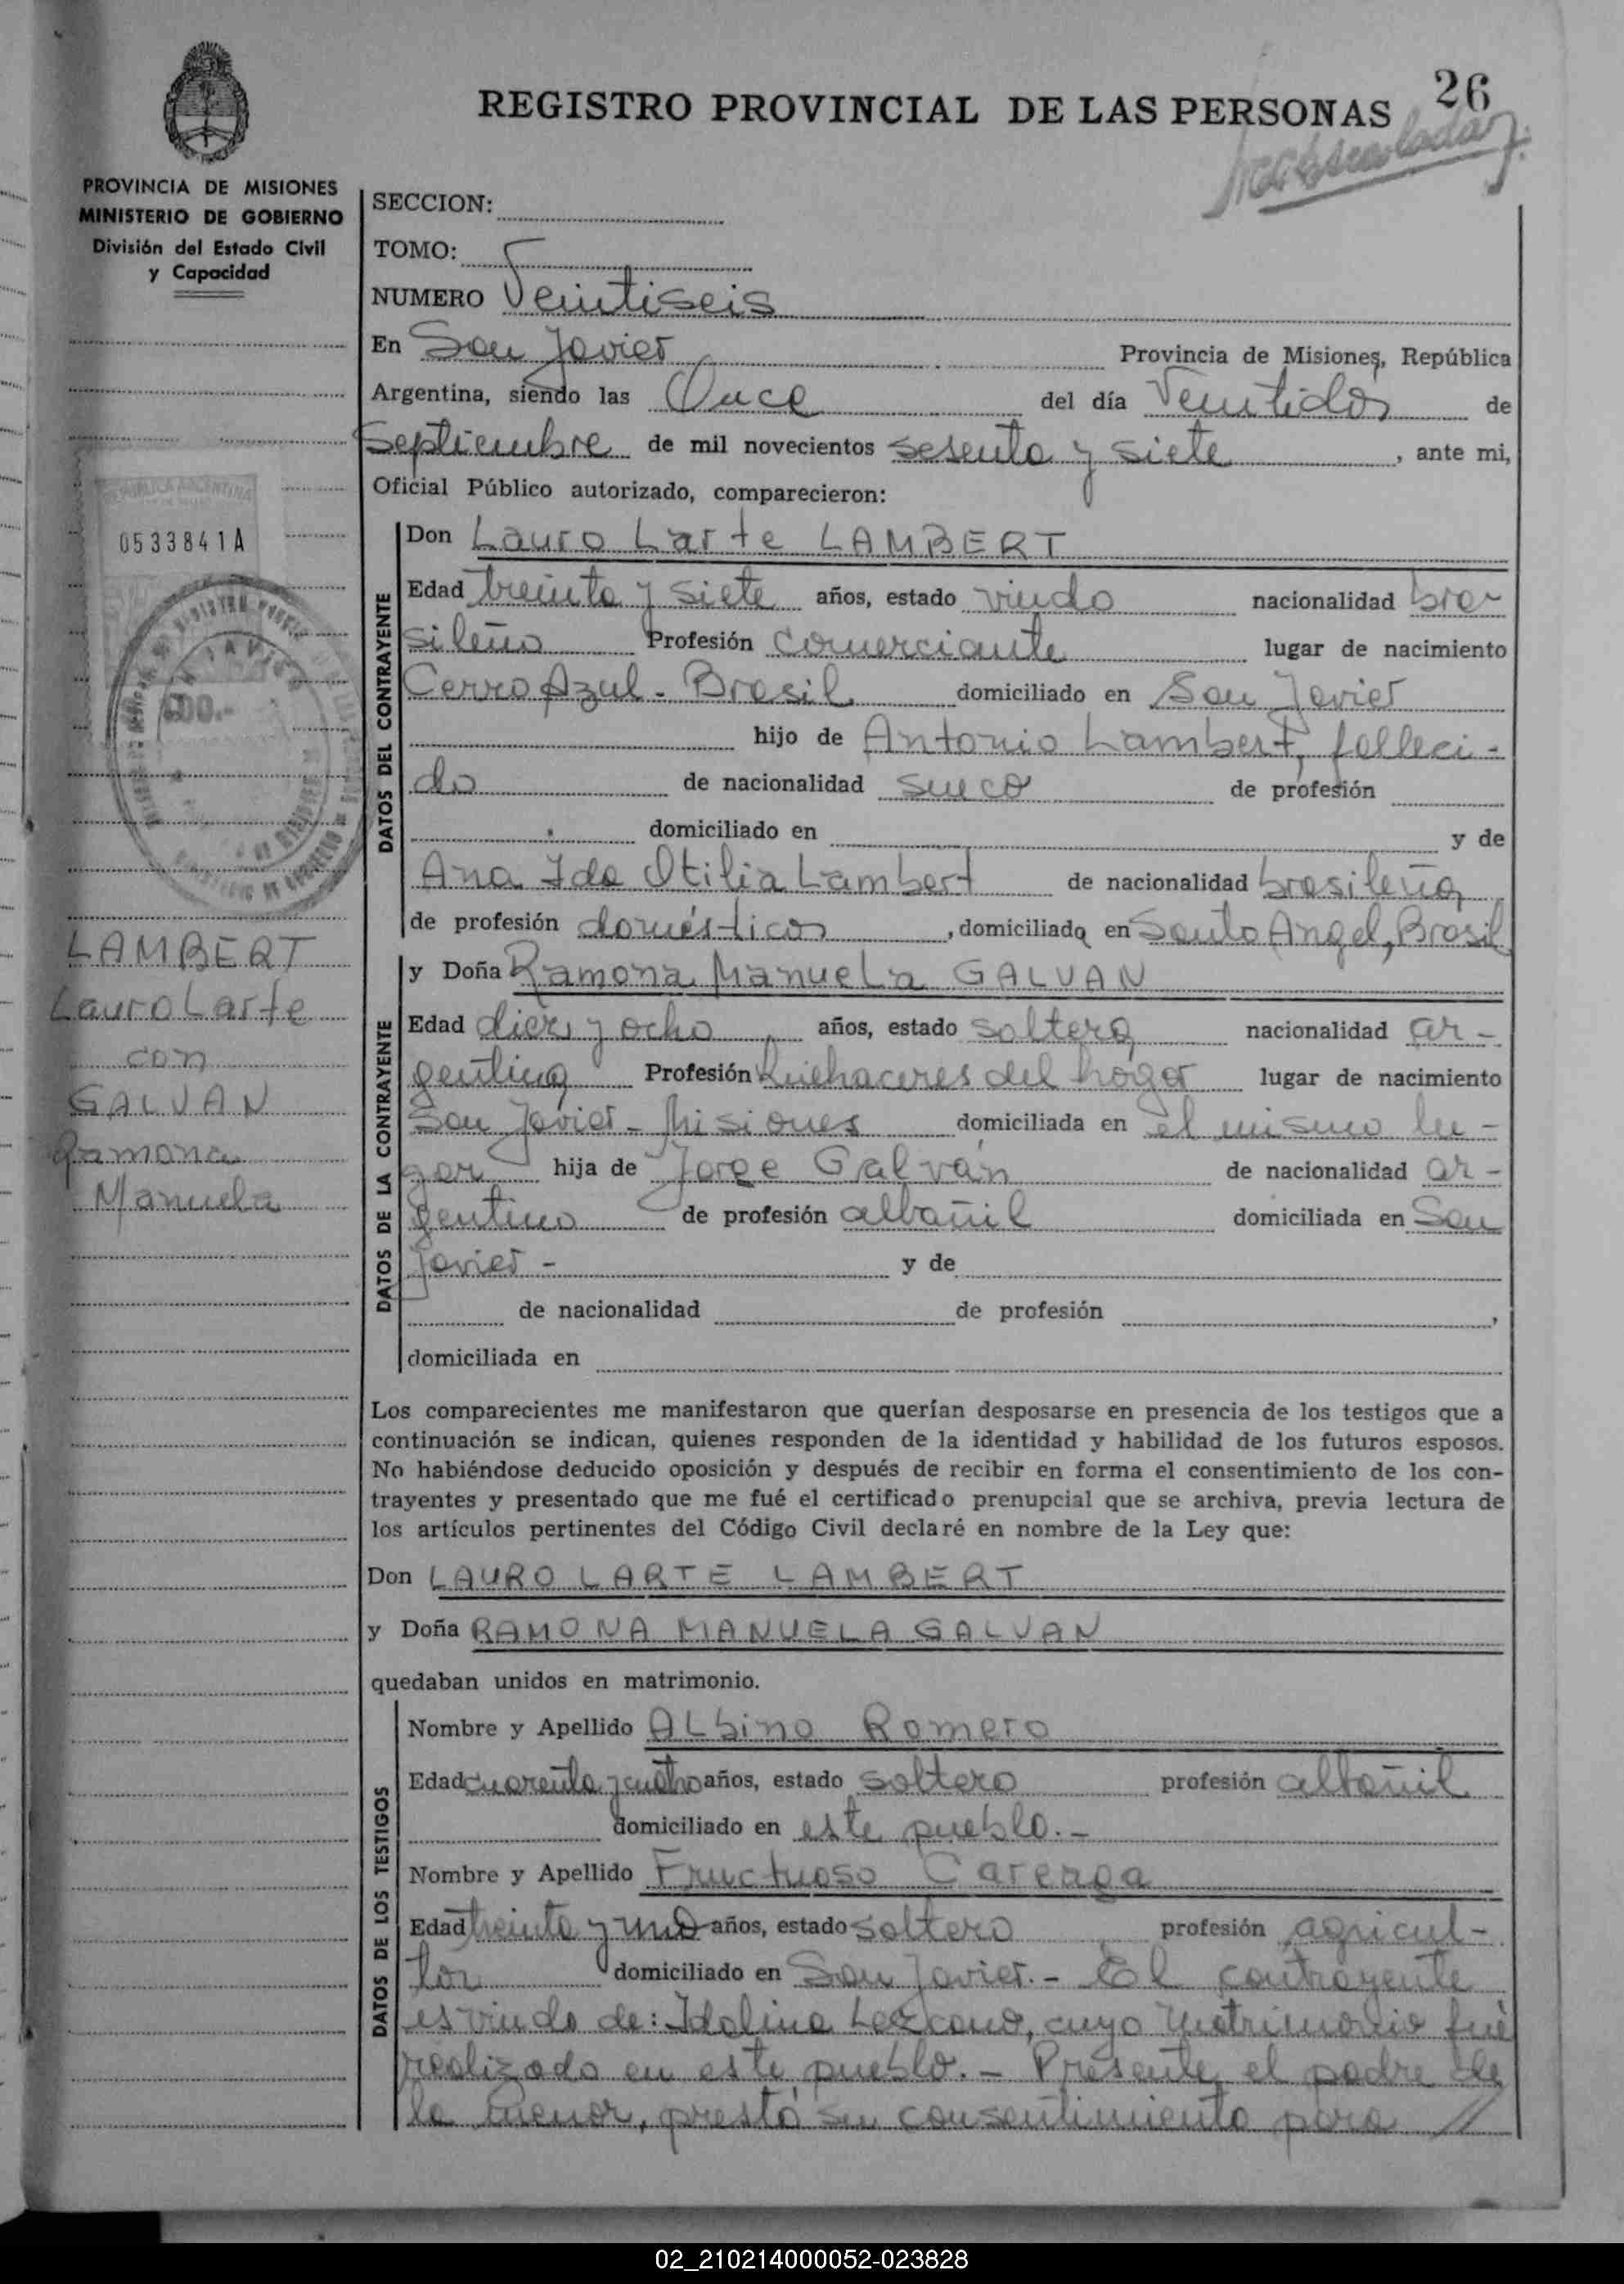 26
REGISTRO PROVINCIAL DE LAS PERSONAS
PROVINCIA DE MISIONES
MINISTERIO DE GOBIERNO
División del Estado Civil
y Capacidad
0533841A
LAMBERT
Lauro Larte
con
GALVAN
Ramona
Manuela
SECCION:
TOMO:
NUMERO Veintiseis
En San Javier Provincia de Misiones, República
Argentina, siendo las Once del día Veintidós de
Septiembre de mil novecientos sesenta y siete, ante mi,
Oficial Público autorizado, comparecieron:
DATOS DEL CONTRAYENTE
Don Lauro Larte LAMBERT
Edad treinta y siete años, estado viudo nacionalidad bra-
sileño Profesión Comerciante lugar de nacimiento
Cerro Azul - Brasil domiciliado en San Javier
hijo de Antonio Lambert, falleci-
do de nacionalidad sueco de profesión
domiciliado en y de
Ana Ida Otilia Lambert de nacionalidad brasileña
de profesión domésticos, domiciliada en Santo Angel, Brasil
DATOS DE LA CONTRAYENTE
y Doña Ramona Manuela GALVAN
Edad diez y ocho años, estado soltera nacionalidad ar-
gentina Profesión Quehaceres del hogar lugar de nacimiento
San Javier - Misiones domiciliada en el mismo lu-
gar hija de Jorge Galván de nacionalidad ar-
gentino de profesión albañil domiciliada en San
Javier - y de
de nacionalidad de profesión ,
domiciliada en
Los comparecientes me manifestaron que querían desposarse en presencia de los testigos que a
continuación se indican, quienes responden de la identidad y habilidad de los futuros esposos.
No habiéndose deducido oposición y después de recibir en forma el consentimiento de los con-
trayentes y presentado que me fué el certificado prenupcial que se archiva, previa lectura de
los artículos pertinentes del Código Civil declaré en nombre de la Ley que:
Don LAURO LARTE LAMBERT
y Doña RAMONA MANUELA GALVAN
quedaban unidos en matrimonio.
DATOS DE LOS TESTIGOS
Nombre y Apellido Albino Romero
Edad cuarenta y cuatro años, estado soltero profesión albañil
domiciliado en este pueblo.-
Nombre y Apellido Fructuoso Careaga
Edad treinta y uno años, estado soltero profesión agricul-
tor domiciliado en San Javier.- El contrayente
es viudo de: Idalina Lezcano, cuyo matrimonio fué
realizado en este pueblo.- Presente el padre de
la menor, prestó su consentimiento para
02_210214000052-023828